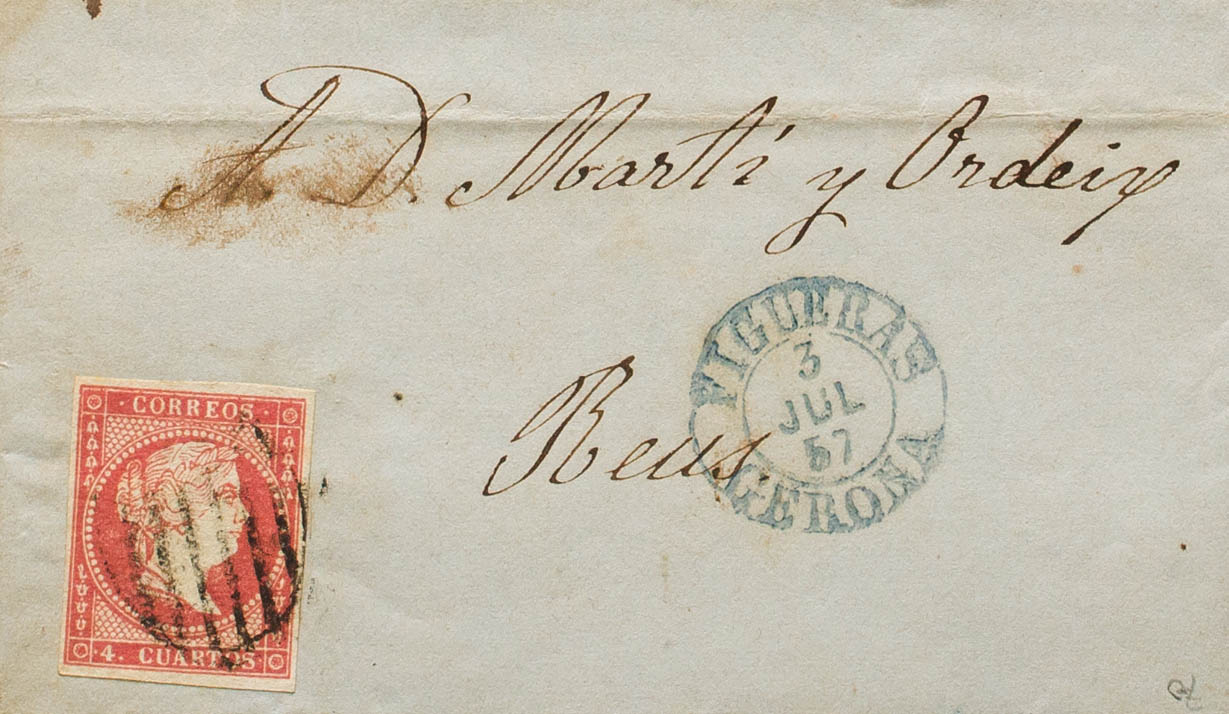 A. D. Martí y Ordeix
FIGUERAS
3
JUL
57
GERONA
Reus.
CORREOS
4. CUARTOS